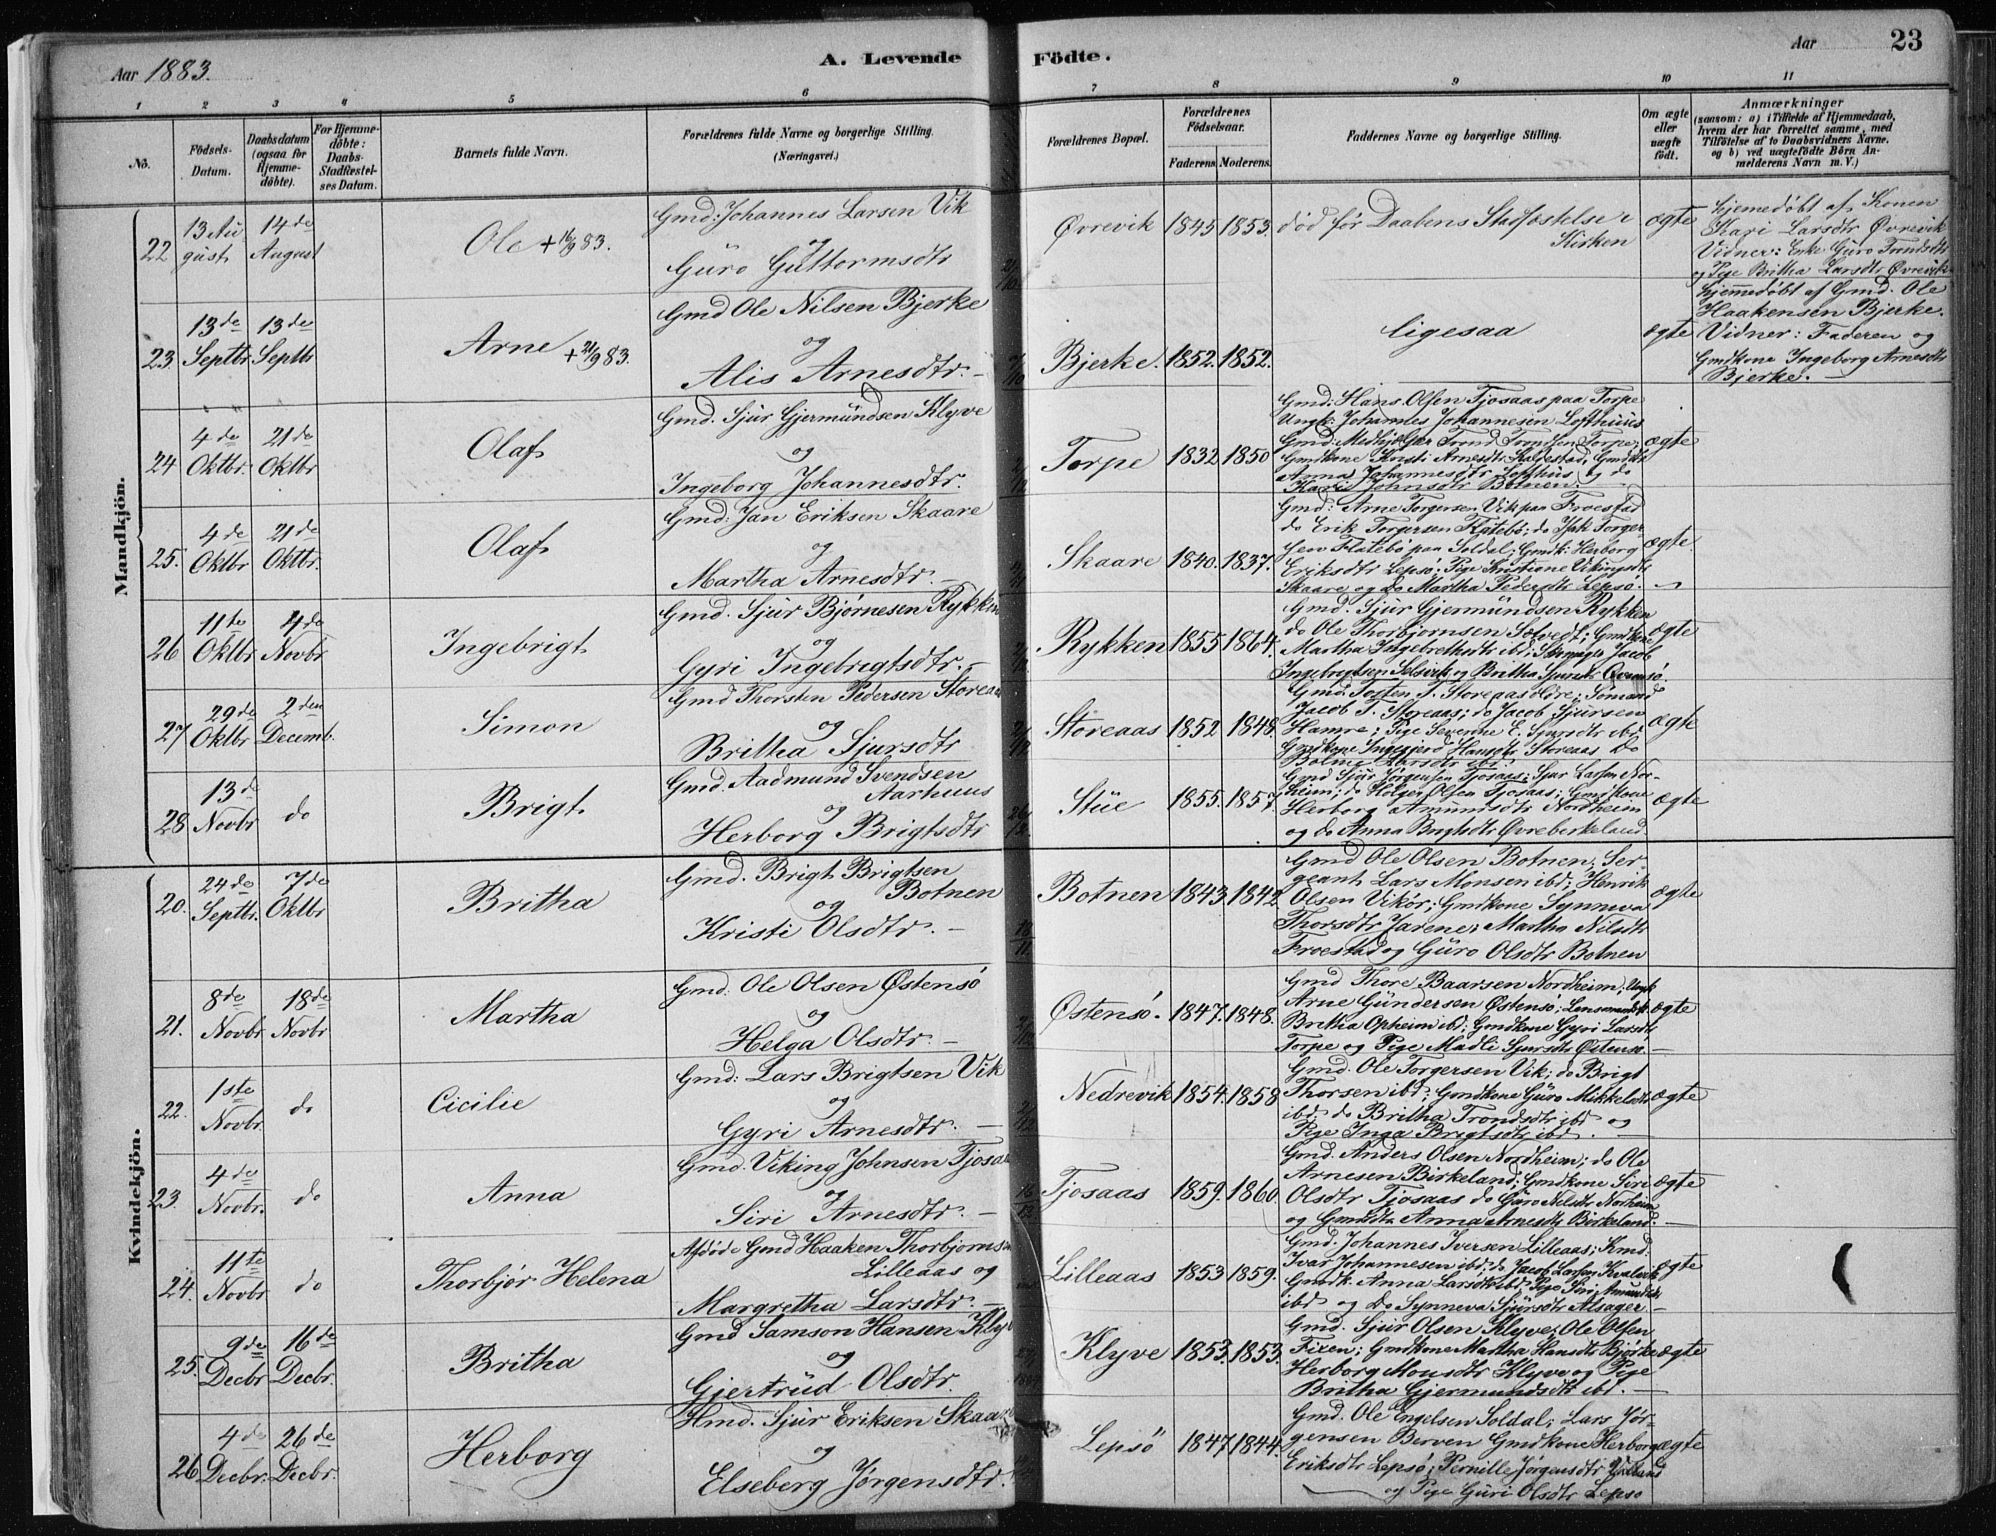 Aar 1883.
A. Levende
Födte.
Aar
23
1 2 3 4 5 6 7 8 9 10 11
No.
Födsels-
Datum.
Daabsdatum
(ogsaa for
Hjemme-
döbte).
For Hjemme-
döbte:
Daabs-
Stadfæstel-
ses Datum.
Barnets fulde Navn.
Forældrenes fulde Navne og borgerlige Stilling.
(Næringsvei.)
Forældrenes Bopæl.
Forældrenes
Födselsaar.
Faderens. Moderens.
Faddernes Navne og borgerlige Stilling.
Om ægte
eller
uægte
født.
Anmærkninger
(saasom: a) i Tilfælde af Hjemmedaab,
hvem der har forrettet samme, med
Tilföielse af to Daabsvidners Navne.
og b) ved uægtefödte Börn An-
melderens Navn m. V.)
Mandkjön.
22
13 Au
gust
14 de
August
Ole + 16/9 83.
Gmd: Johannes Larsen Vik
og
Guro Guttormsdtr
Øvrevik
1845 1853
død før Daabens Stadfæstelse i
Kirken
ægte
hjemedøbt af Konen
Kari Larsdtr Øvrevik
Vidner: Enke Guro Trondsdtr
og Pige Britha Larsdtr Øvrevik
23.
13 de
Septbr.
13 de
Septbr
Arne + 21/9 83.
Gmd Ole Nilsen Bjerke
og
Alis Arnesdtr. –
Bjerke. 1852. 1852.
ligesaa
ægte
hjemmedøbt af Gmd. Ole
Haakensen Bjerke.
Vidner: Faderen og
Gmdkone Ingeborg Arnesdtr
Bjerke. –
24
4 de
Oktbr.
21 de
Oktbr
Olaf
Gmd. Sjur Gjermundsen Klyve
og
Ingeborg Johannesdtr.
Torpe 1832 1850
Gmd: Hans Olsen Tjosaas paa Torpe
Ungk: Johannes Johannesen Lofthuus
Gmd: Medhjælper Trond Trondsen Torpe;
Gmdkone Kristi Arnesdtr
Anna Johannesdtr Lofthus og do
Kari Johnsdtr Botnen.
ægte
25.
4 de
Oktbr
21 de
Oktbr.
Olaf
Gmd: Jan Eriksen Skaare
og
Martha Arnesdtr. –
Skaare 1840. 1837.
Gmd: Arne Torgersen Vik paa Froestad
do Erik Torgersen Flatebö: do Isak Torger-
sen Flatebö paa Soldal; Gmdk: Herborg
Eriksdtr Lepsö. Pige Kristiane Vikingsdtr
Skaare og do Martha Pedersdtr Lepsö. –
ægte
26
11 te
Oktbr
4 de
Novbr
Ingebrigt
Gmd. Sjur Bjørnesen Rykken
og
Gyri Ingebrigtsdtr. –
Rykken 1855 1864.
Gmd. Sjur Gjermundsen Rykken
do Ole Thorbjørnsen Solvedt; Gmdkone
Martha Ingebretsdtr ibd; Jacob
Ingebrigtsen Selsvik og Britha Sjursdtr
ægte
27
29 de
Oktbr
2 den
Decemb.
Simon
Gmd Thorsten Pedersen Storeaas
og
Britha Sjursdtr
Storeaas 1852 1848.
Gmd. Tosten T. Storeaas ; Sömand
Jacob T. Storeaas; do Jacob Sjursen
Hamre; Pige Severine E. Sjursdtr ibd;
Gmdkone Ingegjerd Hansdtr Storeaas do
Larsdtr ibd.
ægte
28
13 d
Novbr
do
Brigt
Gmd. Aadmund Svendsen
Aarhuus
og
Herborg Brigtsdtr
Stüe 1855. 1857.
Gmd Sjur Jörgensen Tjosaas; Sjur Larsen Nor-
heim; do Holger Olsen Tjosaas; Gmdkone
Herborg Amundsdtr Nordheim
og do Anna Brigtsdtr Øvreberkeland.
ægte
Kvindekjön.
20.
24 de
Septbr.
7 de
Oktbr
Britha
Gmd. Brigt Brigtsen
Botnen
og
Kristi Olsdtr. –
Botnen 1843 1842.
Gmd Ole Olsen Botnen; Ser-
geant Lars Monsen ibd; Henrik
Olsen Vikör; Gmdkone Synneva
Thorsdtr Jarene, Martha Nilsdtr
Froestad og Guro Olsdtr Botnen
ægte
21.
8 de
Novbr
18 de
Novbr
Martha
Gmd. Ole Olsen Østensö
og
Helga Olsdtr. –
Østensö. 1847. 1848.
Gmd Thore Baarsen Nordheim; Ungk
Arne Gundersen Østensö;
Britha Opheim ibd; Gmdkone Gyri Larsdtr
Torpe og Pige Madli Sjursdtr Østensö. –
ægte
22.
1ste
Novbr.
do
Cicilie
Gmd: Lars Brigtsen Vik
og
Gyri Arnesdtr. –
Nedrevik 1854. 1858
Gmd. Ole Torgersen Vik; do Brigt
Thorsen ibd; Gmdkone Guro Mikkelsdtr
ibd do Britha Trondsdtr ibd og
Pige Inga Brigtsdtr ibd. –
ægte
23.
4 de
Novbr.
do
Anna
Gmd. Viking Johnsen Tjosaas
og
Siri Arnesdtr. –
Tjosaas 1859. 1860.
Gmd. Anders Olsen Nordheim; do Ole
Arnesen Birkeland; Gmdkone Siri
Olsdtr Tjosaas do Guro Nelsdtr Norheim
og Gmdsdtr Anna Arnesdtr Birkeland. –
ægte
24.
11te
Novbr
do
Thorbjör Helena
Afdöde Gmd Haaken Thorbjornsen
Lilleaas og
Margretha Larsdtr. –
Lilleaas 1853 1859.
Gmd. Johannes Iversen Lilleaas; Kmd.
Ivar Johannesen ibd; do Jacob Larsen Kvalvik
Gmdk. Anna Larsdtr ibd Pige Siri Amundsdtr
ibd og do Synneva Sjursdtr Alsager –
ægte
25.
9 de
Decbr
16 de
Decbr.
Britha
Gmd Samson Hansen Klyve
og
Gjertrud Olsdtr.
Klyve 1853. 1853.
Gmd. Sjur Olsen Klyve, Ole Olsen
Fixen; Gmdkone Martha Hansdtr Bjerke
Herborg Monsdtr Klyve og Pige
Britha Gjermundsdtr ibd. –
ægte
26
4 de
Decbr.
26 de
Decbr.
Herborg
Hmd. Sjur Eriksen Skaare
og
Elseberg Jørgensdtr.
Lepsö 1847 1844.
Gmd. Ole Engelsen Soldal; Lars Jör-
gensen Berven Gmdkone Herborg
Eriksdtr Lepsö; Pernille Jørgensdtr
og Pige Guri Olsdtr Lepsö
ægte